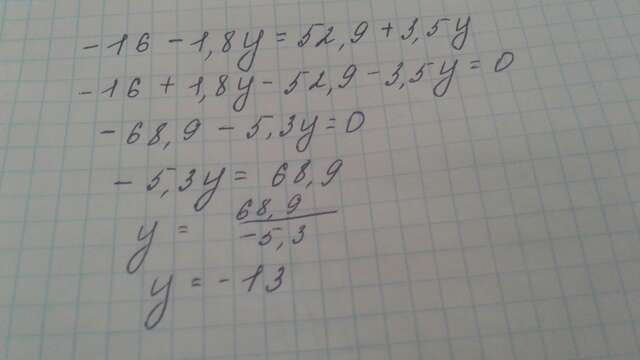 -16 - 1,8y = 52,9 + 3,5y
-16 + 1,8y - 52,9 - 3,5y = 0
-68,9 - 5,3y = 0
-5,3y = 68,9
y = 68,9 / -5,3
y = -13